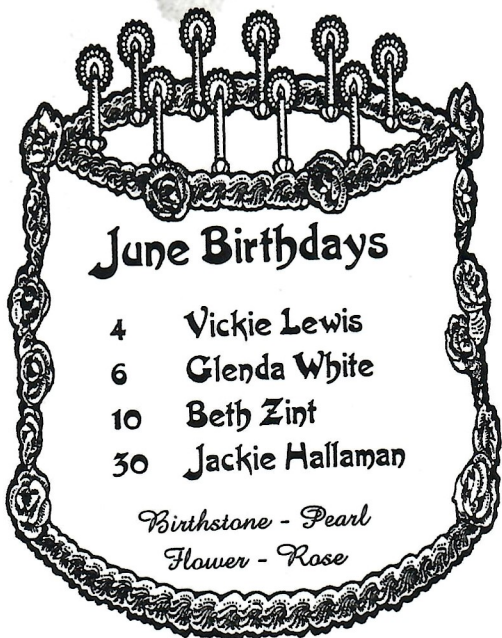 June Birthdays
4 Vickie Lewis
6 Glenda White
10 Beth Zint
30 Jackie Hallaman
Birthstone - Pearl
Flower - Rose